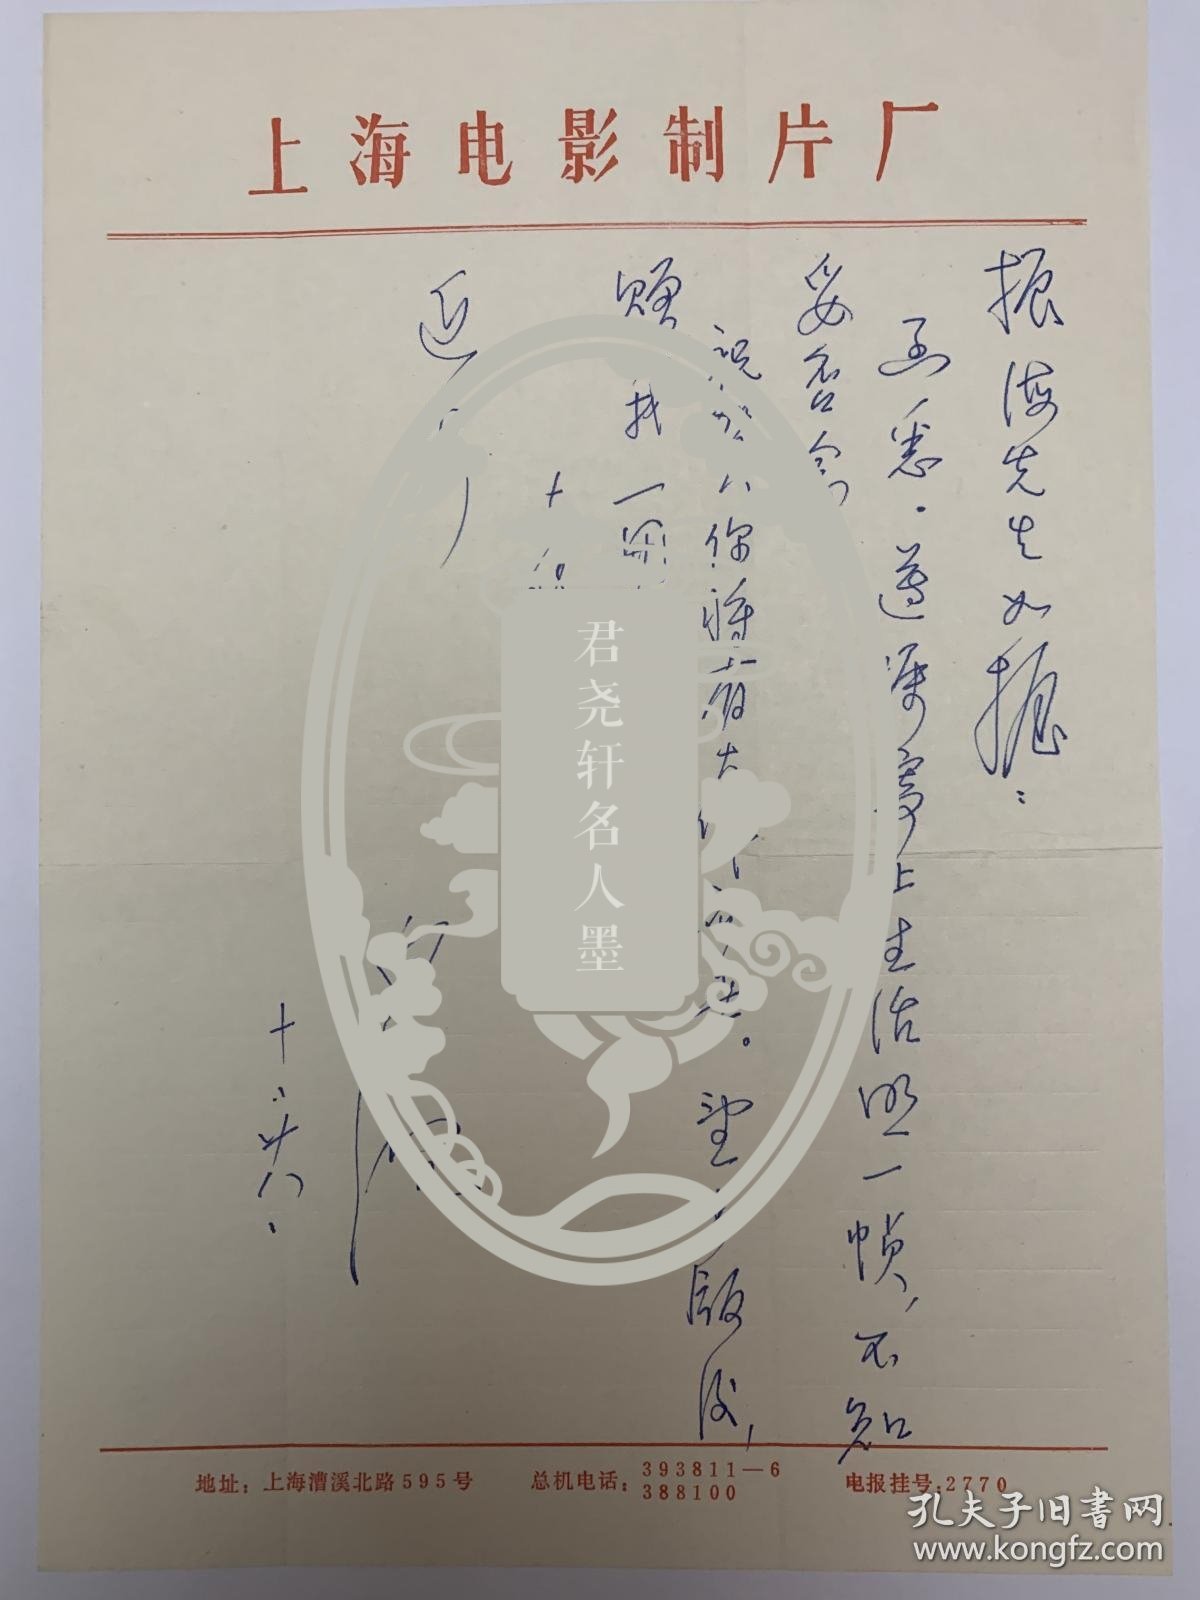 上海电影制片厂
振海先生如握：
函悉。遵嘱寄上生活照一帧，不知
妥否？
祝贺你将有大作问世。望出版后，
赠我一册
近
十、廿八、
君尧轩名人墨
地址：上海漕溪北路595号
总机电话：393811—6
388100
电报挂号：2770
孔夫子旧书网
www.kongfz.com